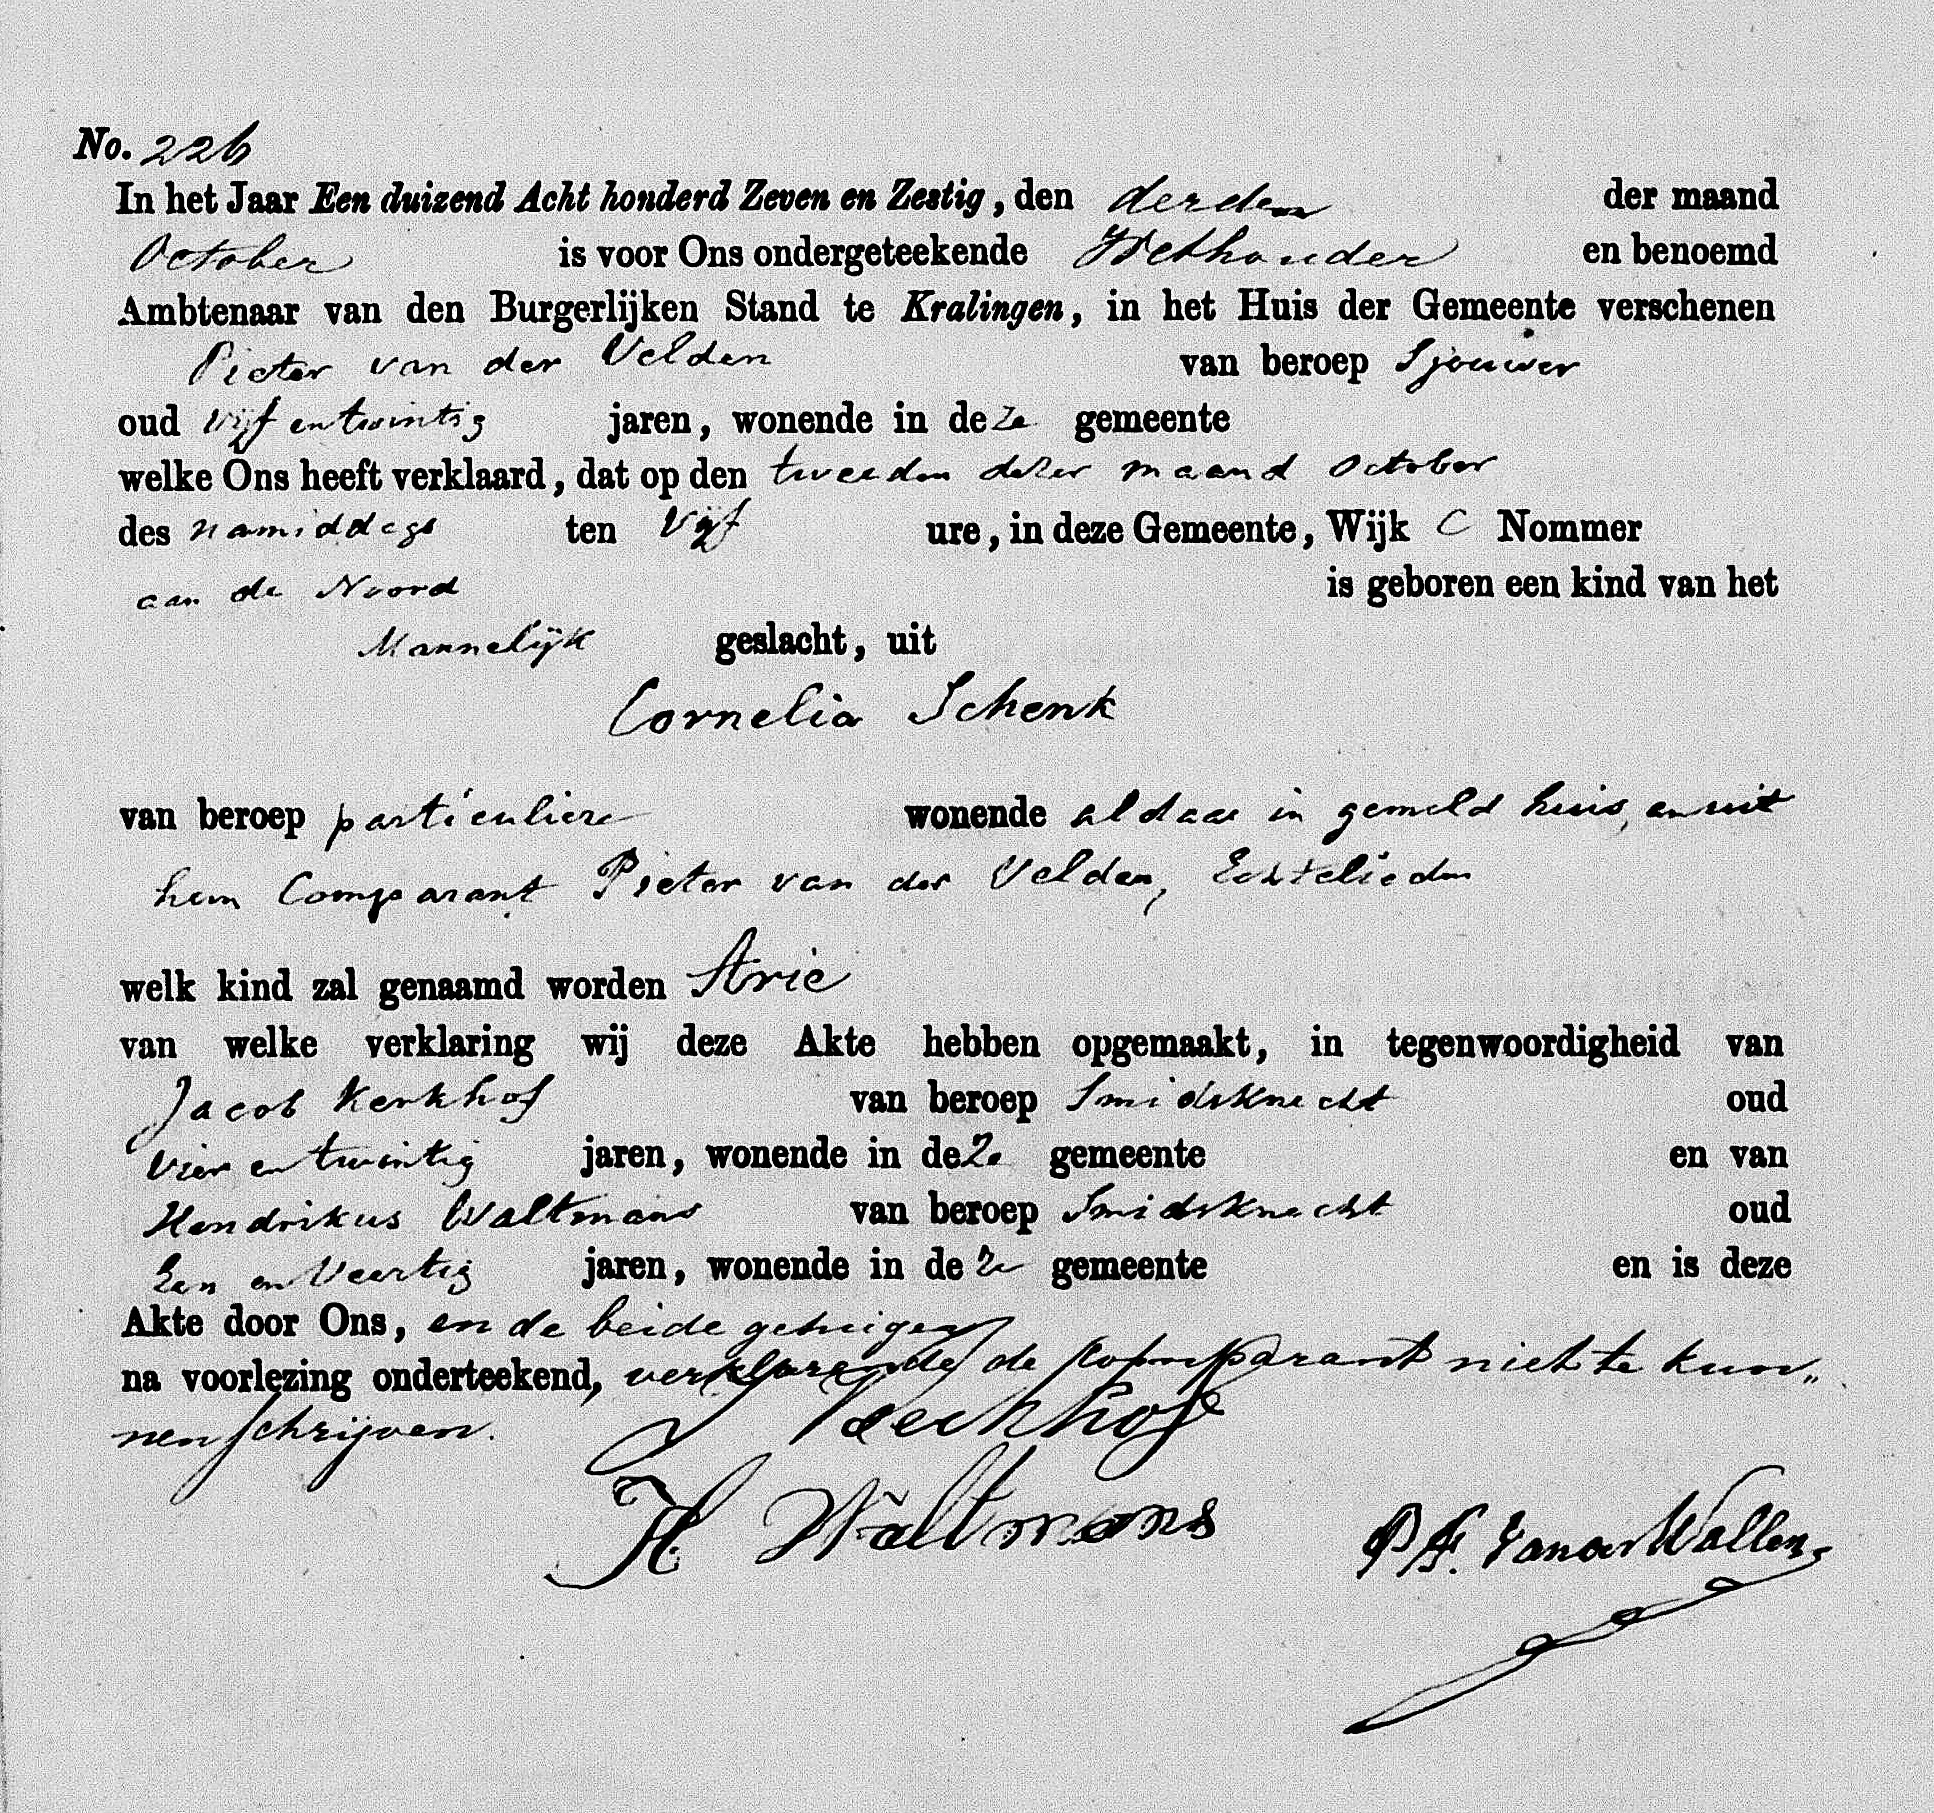 No. 226
In het Jaar Een duizend Acht honderd Zeven en Zestig, den derden der maand
October is voor Ons ondergeteekende Wethouder en benoemd
Ambtenaar van den Burgerlijken Stand te Kralingen, in het Huis der Gemeente verschenen
Pieter van der Velden van beroep Sjouwer
oud vijf en twintig jaren, wonende in deze gemeente
welke Ons heeft verklaard, dat op den tweeden dezer maand October
des namiddags ten vijf ure, in deze Gemeente, Wijk C Nommer
aan de Noord is geboren een kind van het
Mannelijk geslacht, uit
Cornelia Schenk
van beroep particuliere wonende aldaar in gemeld huis, en uit
hem Comparant Pieter van der Velden, Echtelieden
welk kind zal genaamd worden Arie
van welke verklaring wij deze Akte hebben opgemaakt, in tegenwoordigheid van
Jacob Kerkhof van beroep Smidsknecht oud
vier en twintig jaren, wonende in deze gemeente en van
Hendrikus Waltmans van beroep Smidsknecht oud
Een en Veertig jaren, wonende in deze gemeente en is deze
Akte door Ons, en de beide getuigen
na voorlezing onderteekend, verklarende de Comparant niet te kun„
nen schrijven.
J Kerkhof
H Waltmans